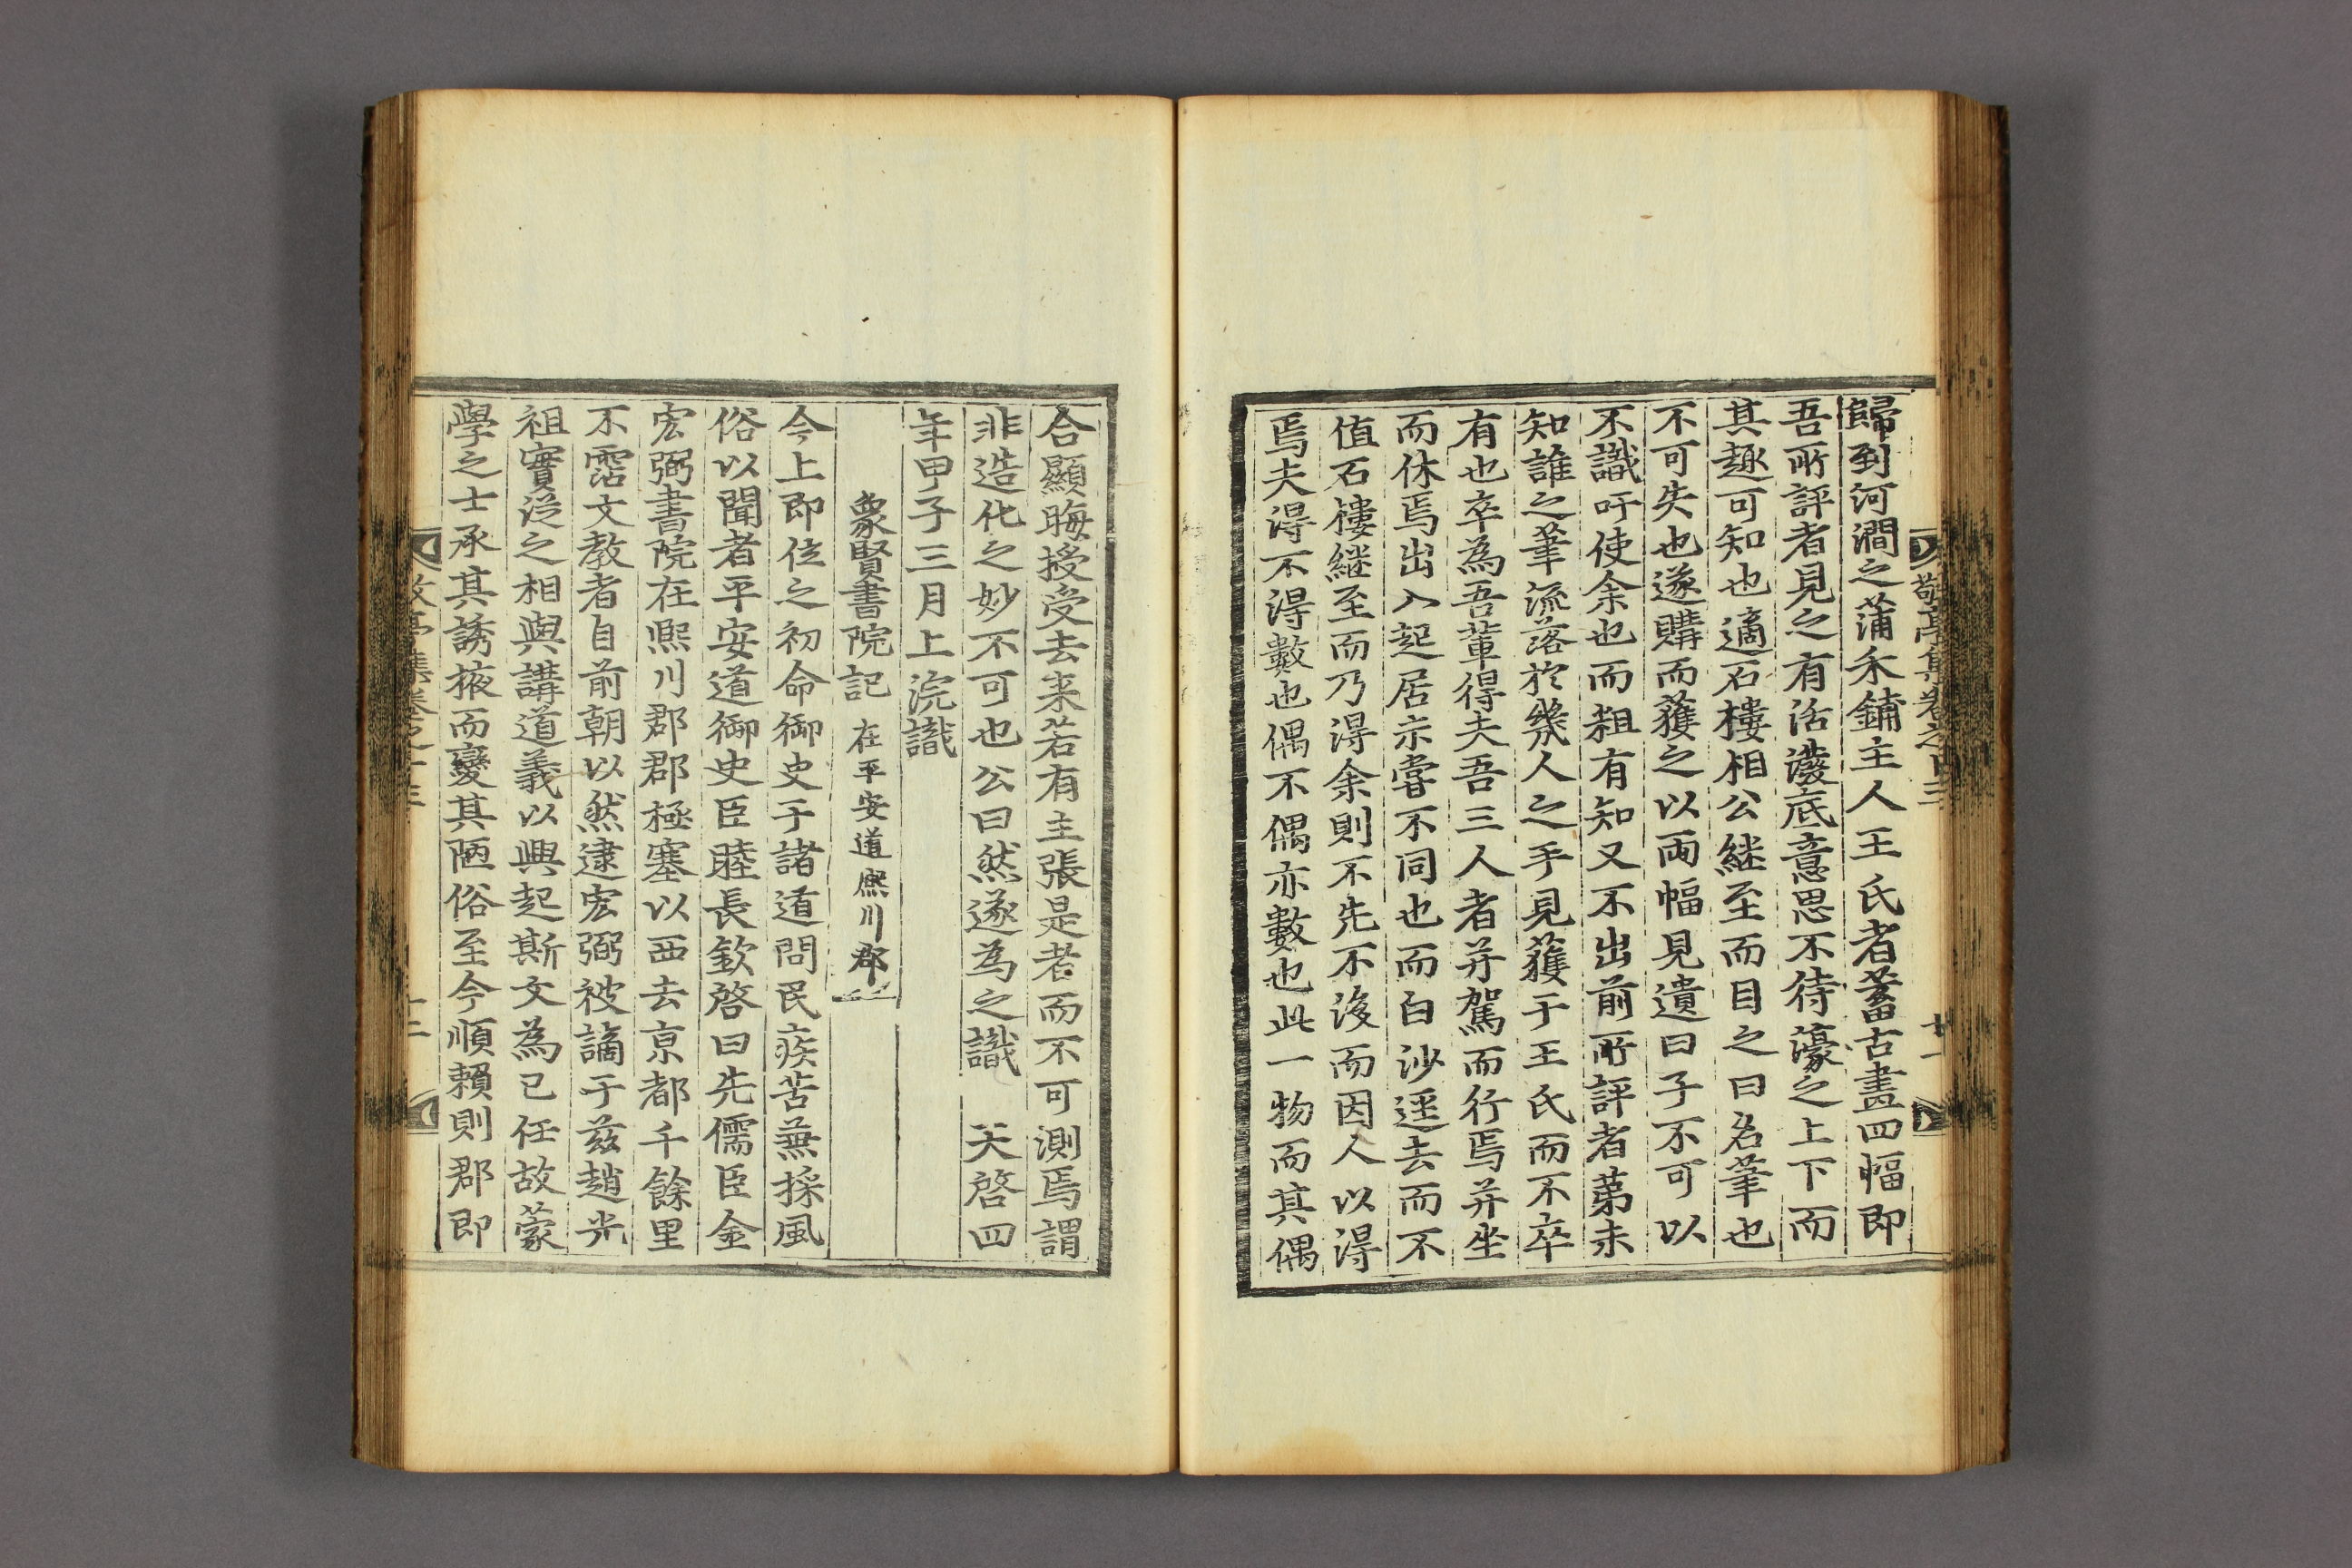 歸到河澗之蒲禾鋪主人王氏者蓄古畫四幅即
吾所評者見之有活潑底意思不待濠之上下而
其趣可知也適石樓相公繼至而目之曰名筆也
不可失也遂購而獲之以兩幅見遺曰子不可以
不識吁使余也而粗有知又不出前所評者第未
知誰之筆流落於幾人之手見獲于王氏而不卒
有也卒為吾輩得夫吾三人者并駕而行焉并坐
而休焉出入起居亦嘗不同也而白沙逕去而不
值石樓繼至而乃得余則不先不後而因人以得
焉夫得不得數也偶不偶亦數也此一物而其偶
合顯晦授受去来若有主張是者而不可測焉謂
非造化之妙不可也公曰然遂為之識 天啓四
年甲子三月上浣識
象賢書院記 在平安道熈川郡
今上即位之初命御史于諸道問民疾苦兼採風
俗以聞者平安道御史臣睦長欽啓曰先儒臣金
宏弼書院在熙川郡郡極塞以西去京都千餘里
不霑文教者自前朝以然逮宏弼被謫于茲趙光
祖實從之相與講道義以興起斯文為已任故蒙
學之士承其誘掖而變其陋俗至今順賴則郡即